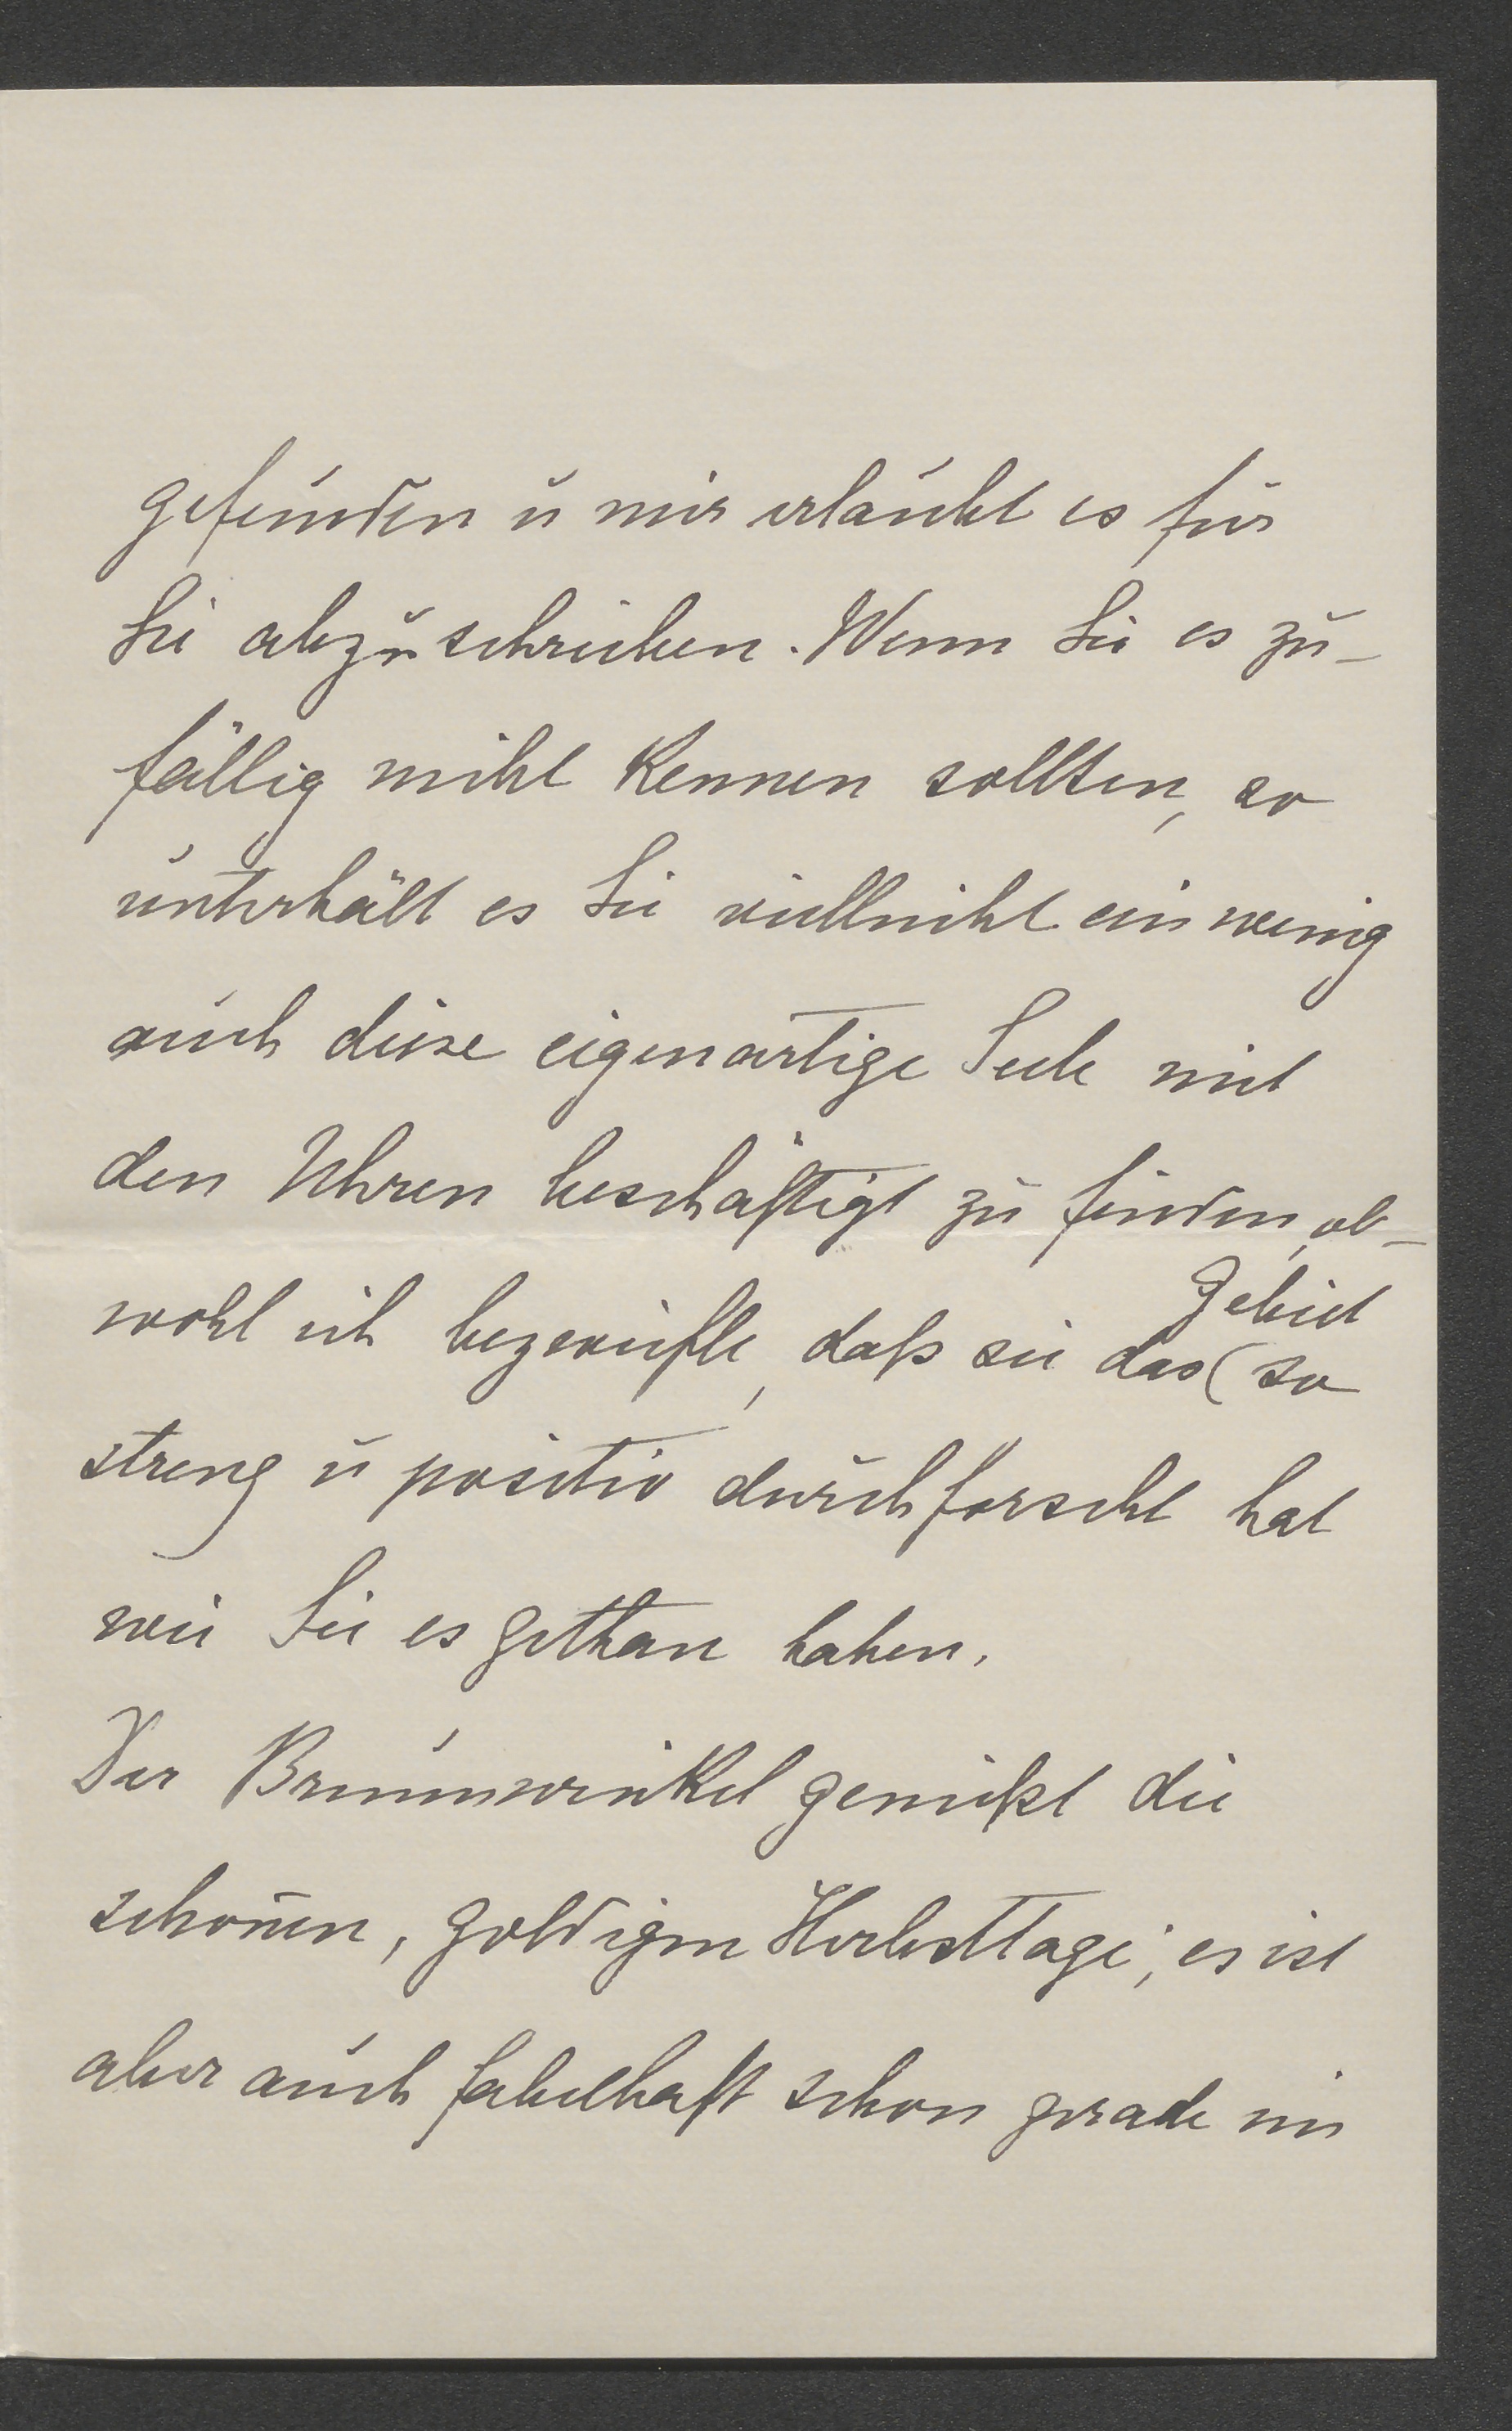 gefunden u mir erlaubt es für
Sie abzuschreiben. Wenn Sie es zu-
fällig nicht kennen sollten, so
unterhält es Sie vielleicht ein wenig
auch diese eigenartige Seele mit
den Uhren beschäftigt zu finden, ob-
Gebiet
wohl ich bezweifle, daß sie das ( so
streng u positiv durchforscht hat
wie Sie es gethan haben.
Der Brunnwinkel genießt die
schönen, goldigen Herbsttage; es ist
aber auch fabelhaft schon grade im